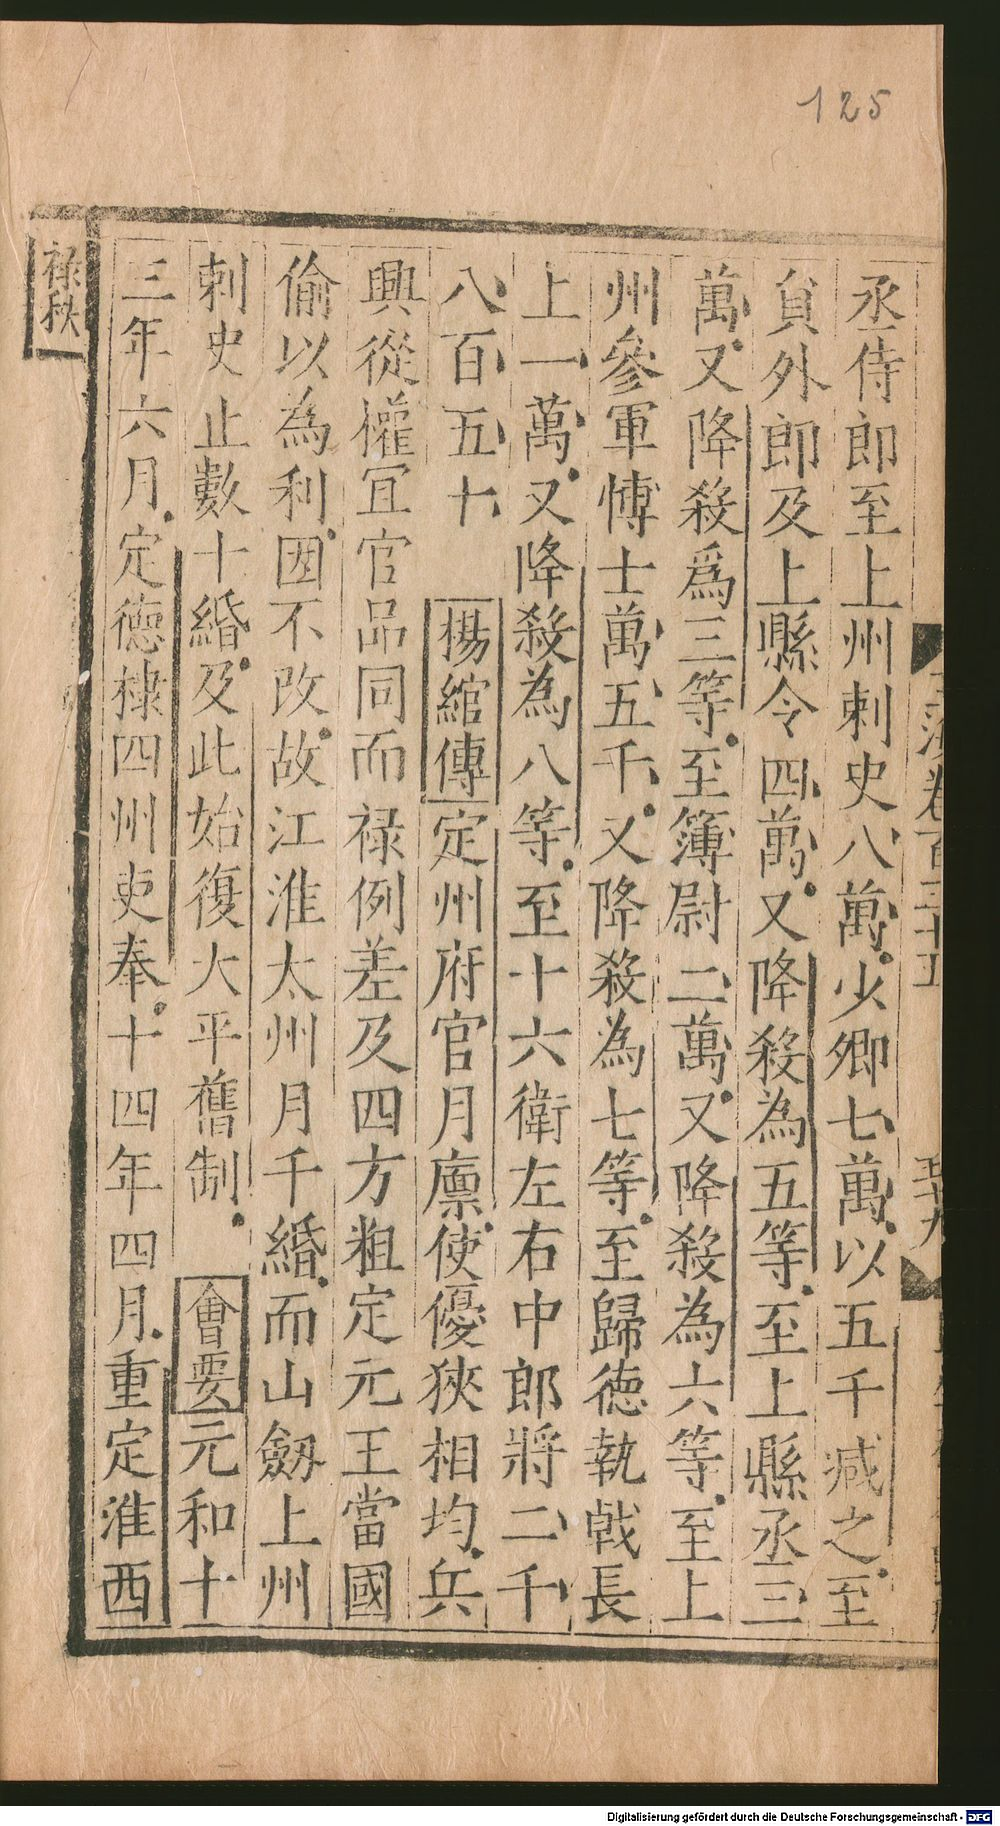 125
丞侍郎至上州刺史八萬少卿七萬以五千减之至
貟外郎及上縣令四萬又降殺為五等至上縣丞三
萬又降殺爲三等至簿尉二萬又降殺為六等至上
州參軍愽士萬五千又降殺為七等至歸徳執戟長
上一萬又降殺為八等至十六衛左右中郎將二千
八百五十 楊綰傳定州府官月廪使優狹相均兵
興從權宜官品同而禄例差及四方粗定元王當國
偷以為利因不改故江淮太州月千緡而山劔上州
刺史止數十緡及此始復大平舊制 會要元和十
三年六月定徳棣四州吏奉十四年四月重定淮西
禄秩
卷百三十五
五十九
Digitalisierung gefördert durch die Deutsche Forschungsgemeinschaft - DFG